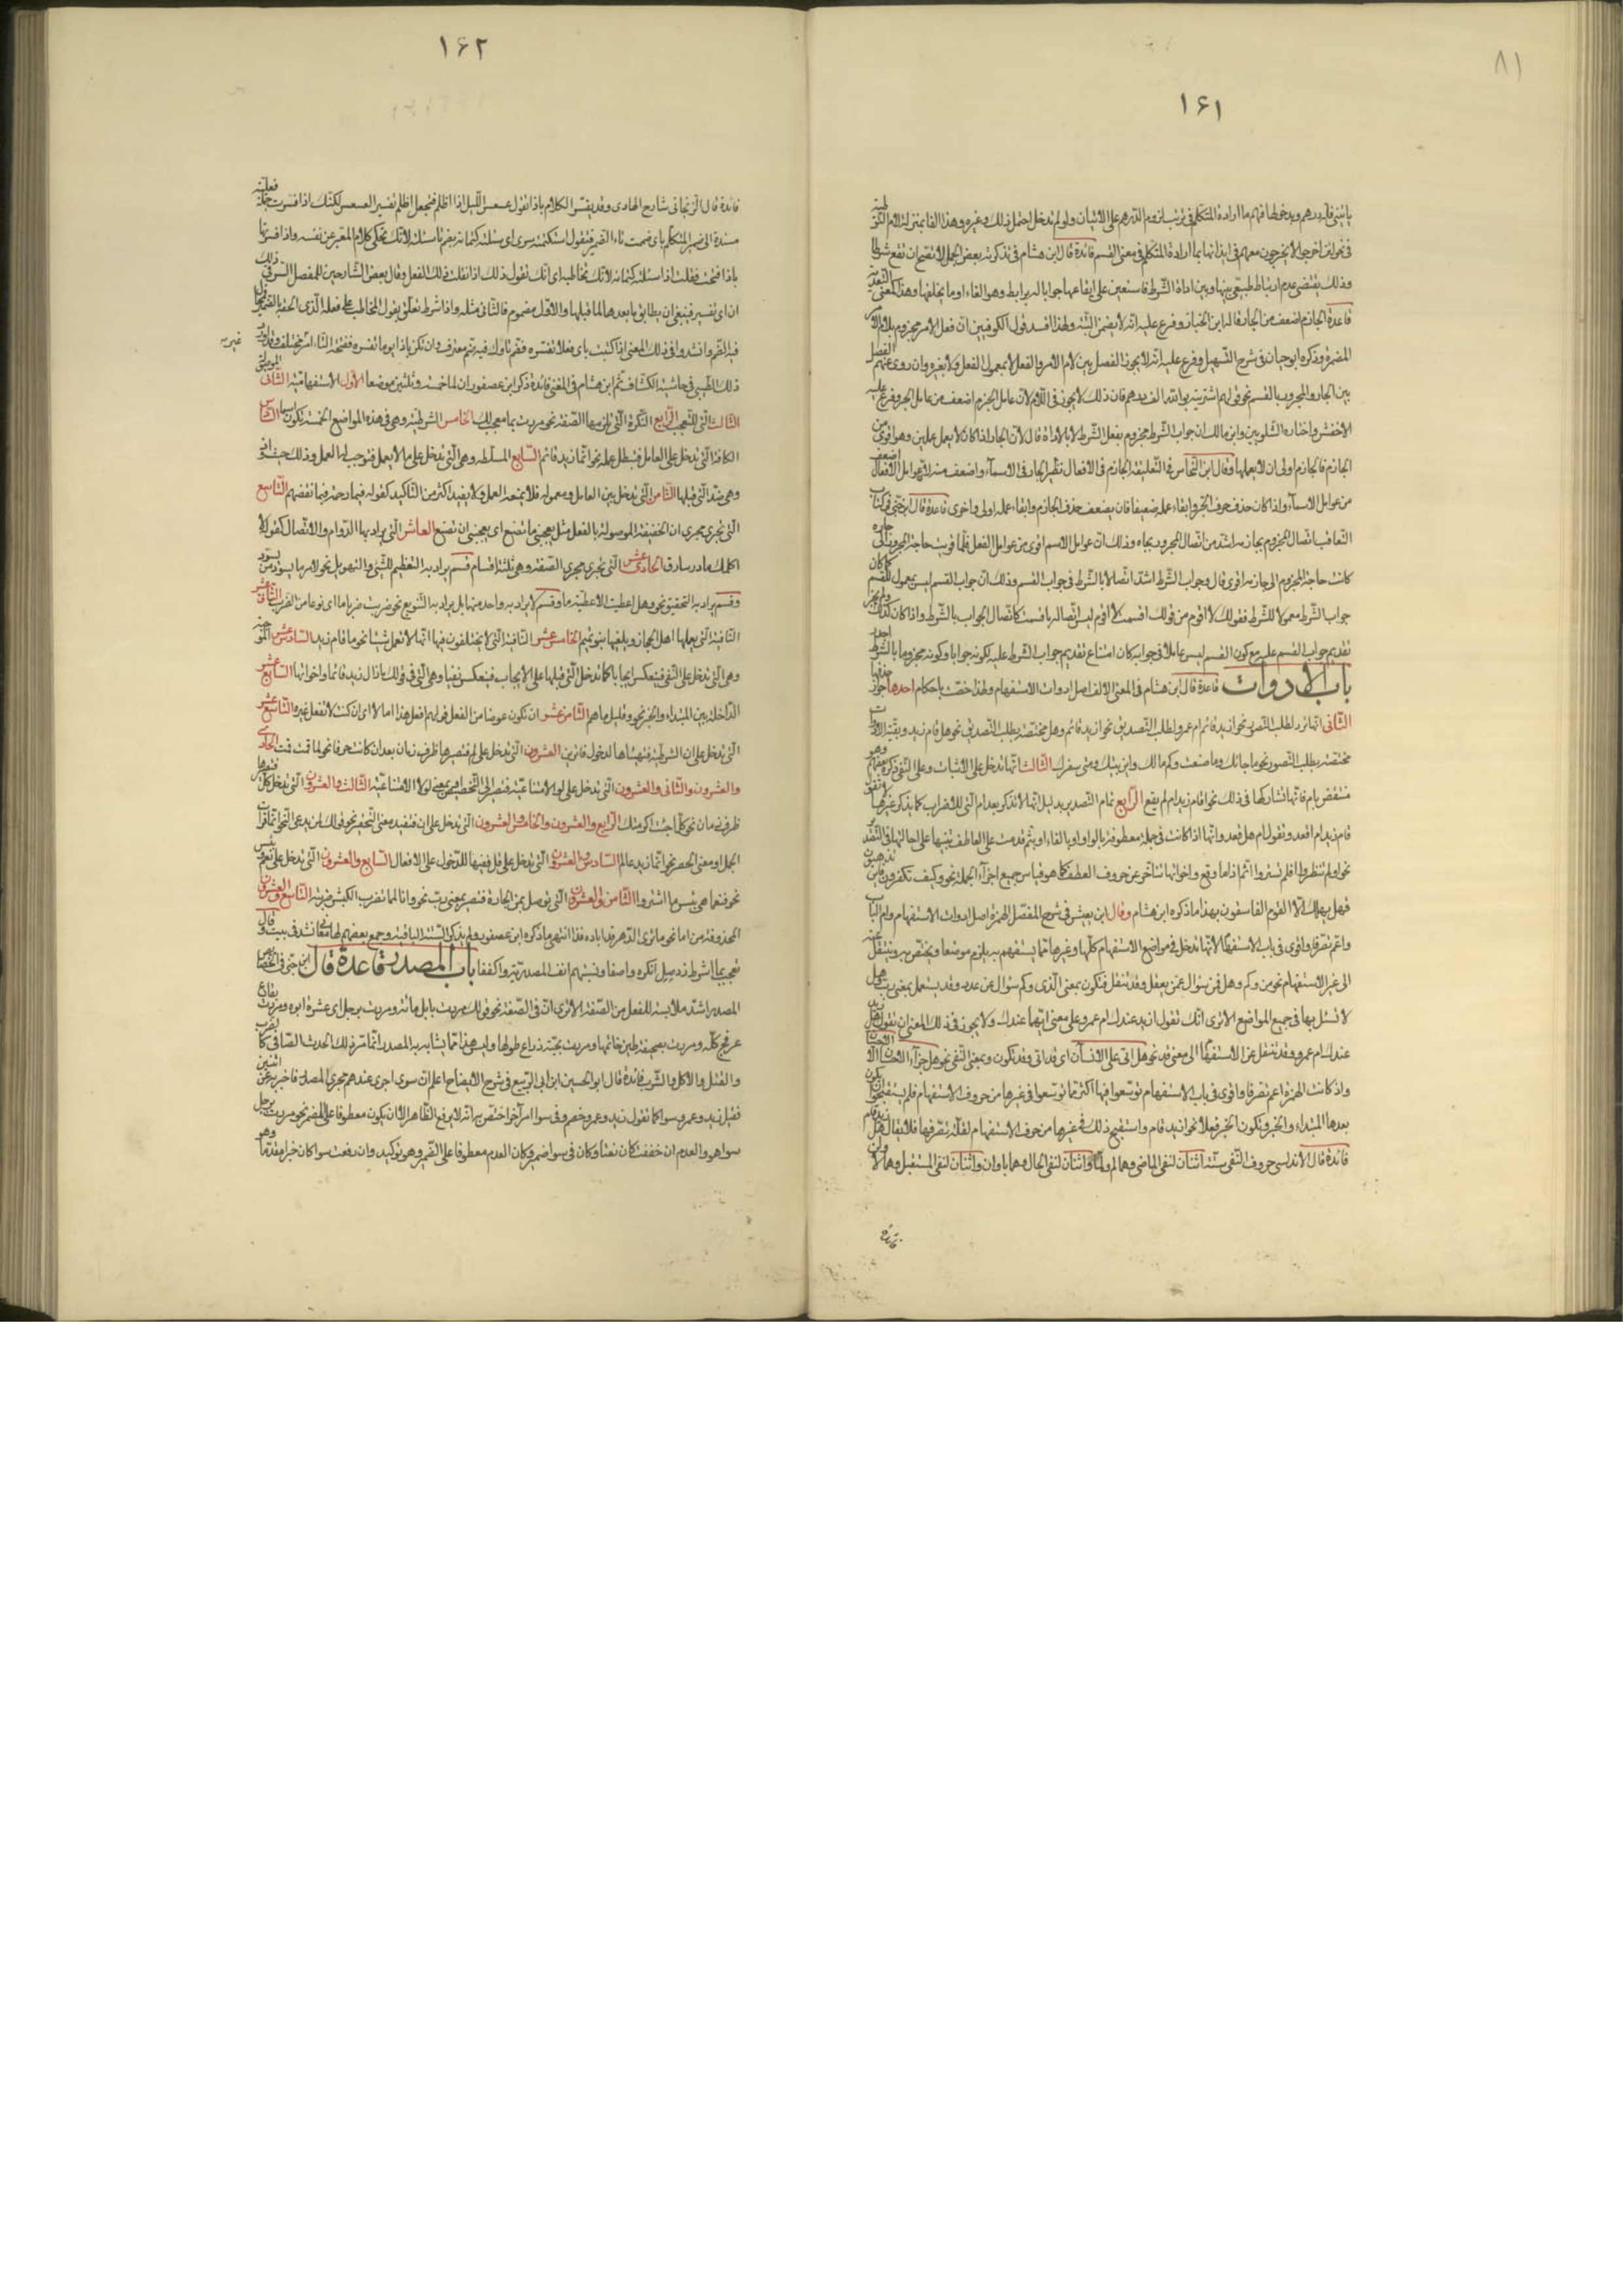 ٨١
١۶١
فى نحو لئن اخرجوا لا يخرجون معهم فى ايذانها بما اراده المتكلم فى معنى القسم فائدة قال ابن هشام فى تذكرته بعض الجمل لا تصح ان تقع شرطا
وذلك يقتضى عدم ارتباط طبيعى بينها وبين اداة الشرط فاستعين على ايقاعها جوابا له برابط وهو الفاء او ما يخلفها وهذا كمعنى التعدية
قاعدة الجازم اضعف من الجار قاله ابن الخباز وفرع عليه انه لا يضمر البتة ولهذا افسد قول الكوفيين ان فعل الامر مجزوم بلام الامر
المضمرة وذكره ابو حيان فى شرح التسهيل وفرع عليه انه لا يجوز الفصل بين لام الامر والفعل لا بمعمول الفعل ولا بغيره وان روى عنهم الفصل
بين الجار والمجرور بالقسم نحو قولهم اشتريته بوالله الف درهم فان ذلك لا يجوز فى اللام لان عامل الجزم اضعف من عامل الجر وفرع عليه
الاخفش واختاره الشلوبين وابن مالك ان جواب الشرط مجزوم بفعل الشرط لا بالاداة قال لان الجار اذا كان لا يعمل عملين وهو اقوى من
الجازم فالجازم اولى ان لا يعملهما وقال ابن النحاس فى التعليقة الجازم فى الافعال نظير الجار فى الاسماء واضعف منه لان عوامل الافعال اضعف
من عوامل الاسماء واذا كان حذف حرف الجر وابقاء عمله ضعيفا فان يضعف حذف الجازم وابقاء عمله اولى واحرى قاعدة قال ابن جنى فى كتاب
التعاقب اتصال المجزوم بجازمه اشد من اتصال المجرور بجاره وذلك ان عوامل الاسم اقوى من عوامل الفعل فلما قويت حاجة المجرور الى جاره
كانت حاجة المجزوم الى جازمه اقوى قال وجواب الشرط اشد اتصالا بالشرط فى جواب القسم وذلك ان جواب القسم ليس بمعمول للقسم كما كان
جواب الشرط معمولا للشرط فقولك لا اقوم من قولك اقسمت لا اقوم ليس اتصاله باقسمت كاتصال الجواب بالشرط واذا كان كذلك ولم يجز
تقديم جواب القسم عليه مع كون القسم ليس عاملا فى جوابه كان امتناع تقديم جواب الشرط عليه لكونه جوابا وكونه مجزوما بالشرط اجدر
باب الادوات قاعدة قال ابن هشام فى المغنى الالف اصل ادوات الاستفهام ولهذا خصت باحكام احدها جواز حذفها
الثانى انها ترد لطلب التصور نحو ازيد قائم ام عمرو ولطلب التصديق نحو ازيد قائم وهل مختصة بطلب التصديق نحو هل قام زيد وبقية الادوات
مختصة بطلب التصور نحو ما جاءك وما صنعت وكم مالك واين بيتك ومتى سفرك الثالث انها تدخل على الاثبات وعلى النفى ذكره بعضهم وهو
منتقض بام فانها تشاركها فى ذلك نحو اقام زيد ام لم يقم الرابع تمام التصدير بدليل انها لا تذكر بعد ام التى للاضراب كما يذكر غيرها لا تقول
قام زيد ام اقعد وتقول ام هل قعد وانها اذا كانت فى جملة معطوفة بالواو او بالفاء او بثم قدمت على العاطف تنبيها على اصالتها فى التصدير
نحو اولم ينظروا افلم يسيروا اثم اذا ما وقع واخواتها تتأخر عن حروف العطف كما هو قياس جميع اجزاء الجملة نحو وكيف تكفرون فاين تذهبون
فهل يهلك الا القوم الفاسقون بهذا ما ذكره ابن هشام وقال ابن يعيش فى شرح المفصل الهمزة اصل ادوات الاستفهام وام الباب
واعم تصرفا واقوى فى باب الاستفهام لانها تدخل فى مواضع الاستفهام كلها وغيرها مما يستفهم به يلزم موضعا ويختص به وينتقل عنه
الى غير الاستفهام نحو من وكم وهل فمن سؤال عمن يعقل وقد تنتقل فتكون بمعنى الذى وكم سؤال عن عدد وقد يستعمل بمعنى رب وهل
لا تسئل بها فى جميع المواضع الا ترى انك تقول ازيد عندك ام عمرو على معنى ايهما عندك ولا يجوز فى ذلك المعنى ان تقول هل زيد
عندك ام عمرو وقد تنتقل عن الاستفهام الى معنى قد نحو هل اتى على الانسان اى قد اتى وقد تكون بمعنى النفى نحو هل جزاء الاحسان الا الاحسان
واذ كانت الهمزة اعم تصرفا واقوى فى باب الاستفهام توسعوا فيها اكثر مما توسعوا فى غيرها من حروف الاستفهام فلم يستقبحوا ان يكون
بعدها المبتداء والخبر ويكون الخبر فعلا نحو ازيد قام واستقبح ذلك فى غيرها من حروف الاستفهام لقلة تصرفها فلا يقال هل زيد قام
فائدة قال الاندلسى حروف النفى ستة اثنان لنفى الماضى وهما لم ولما واثنان لنفى الحال وهما ما وان واثنان لنفى المستقبل وهما لا ولن
فائدة
١۶٢
فائدة قال الزنجانى شارح الهادى وقد يفسر الكلام باذا تقول عسعس الليل اذا اظلم فتجعل اظلم تفسيرا لعسعس لكنك اذا فسرت جملة فعلية
مسندة الى ضمير المتكلم باى ضممت تاء الضمير فتقول استكتمته سرى اى سئلته كتمانه بضم تاء سئلته لانك تحكى كلام المعبر عن نفسه واذا فسرتها
باذا فتحت فقلت اذا سئلته كتمانه لانك تخاطبه اى انك تقول ذلك اذا فعلت ذلك الفعل وقال بعض الشارحين للمفصل السر فى ذلك
ان اى تفسير فينبغى ان يطابق ما بعدها لما قبلها والاول مضموم فالثانى مثله واذا شرط تعلق بقول المخاطب على فعله الذى الحقه
غيره
ذلك الطيبى فى حاشية الكشاف ثم ابن هشام فى المغنى فائدة ذكر ابن عصفور ان لما خمسة وثلثين موضعا الاول الاستفهامية الثانى الموصولة
الثالث التى للتعجب الرابع النكرة التى تلزمها الصفة نحو مررت بما معجب لك الخامس الشرطية وهى فى هذه المواضع الخمسة تكون اسما السادس
الكافة التى تدخل على العامل فتبطل عمله نحو انما زيد قائم السابع المسلطة وهى التى تدخل على ما لا يعمل فتوجب له العمل وذلك حيث واذ
وهى ضد التى قبلها الثامن التى تدخل بين العامل ومعموله فلا تمنعه العمل ولا يفيد اكثر من التاكيد كقوله فبما رحمة فبما نقضهم التاسع
التى تجرى مجرى ان الخفيفة الموصولة بالفعل مثل يعجبنى ما تصنع اى يعجبنى ان تصنع العاشر التى يراد بها الدوام والاتصال كقوله لا
اكلمك ما در شارق الحادى عشر التى تجرى مجرى الصفة وهى ثلثة اقسام قسم يراد به التعظيم للشئ والتهويل نحو لامر ما يسود من يسود
وقسم يراد به التحقير نحو وهل اعطيت الا عطية ما وقسم لا يراد به واحد منهما بل يراد به التنويع نحو ضربت ضربا ما اى نوعا من الضرب الثانى عشر
النافية التى يعملها اهل الحجاز ويلغيها بنو تميم الخامس عشر النافية التى لا يختلفون فيها انها لا تعمل شيئا نحو ما قام زيد السادس عشر الموجبة
وهى التى تدخل على النفى فينعكس ايجابا كما تدخل التى قبلها على الايجاب فينعكس نفيا وهى التى فى قولك ما زال زيد قائما واخواتها السابع عشر
الداخلة بين المبتداء والخبر نحو وقليل ما هم الثامن عشر ان تكون عوضا من الفعل فى قولهم افعل هذا اما لا اى ان كنت لا تفعل غيره التاسع عشر
التى تدخل على ان الشرطية فتهيئها لدخول فاما ترين العشرون التى تدخل على لم فتصيرها ظرف زمان بعد ان كانت حرفا نحو لما قمت قمت الحادى
والعشرون والثانى والعشرون التى تدخل على لو الامتناعية فتصير الى التحضيض او بمعنى لولا الامتناعية الثالث والعشرون التى تدخل كل فتصيرها
ظرف زمان نحو كلما جئت اكرمتك الرابع والعشرون والخامس والعشرون التى تدخل على ان فتفيد معنى التحقير نحو قولك لمن يدعى النحو انما قرأت
الجمل او معنى الحصر نحو انما زيد عالم السادس والعشرون التى تدخل على قل فتهيئها للدخول على الافعال السابع والعشرون التى تدخل على نعم وبئس
نحو فنعما هى بئس ما اشتروا الثامن والعشرون التى توصل بمن الجارة فتصير بمعنى رب نحو وانا لمما نضرب الكبش ضربة التاسع والعشرون
باب المصدر قاعدة قال ابن جنى فى الخصائص
المصدر اشد ملابسة للفعل من الصفة الا ترى ان فى الصفة نحو قولك مررت بابل مائة ومررت برجل ابى عشرة ابوه ومررت بقاع
عرفج كله ومررت بصحيفة طين خاتمها ومررت بحية ذراع طولها وليس هذا مما يشابه به المصدر انما تريد ذلك الحدث الصافى كالضرب
والقتل والاكل والشرب فائدة قال ابو الحسين ابن ابى الربيع فى شرح الايضاح اعلم ان سوى اجرى عندهم مجرى المصدر فاخبر به عن اثنين
فقيل زيد وعمرو سوا كما تقول زيد وعمرو خصم وفى سوا امر آخر اختص به انه لا يرفع الظاهر الا ان يكون معطوفا على المضمر نحو مررت برجل
سوا هو والعدم ان خفضت كان نعتا وكان فى سوا ضمير وكان العدم معطوفا على الضمير وهو توكيد وان رفعت سوا كان خبرا مقدما وهو